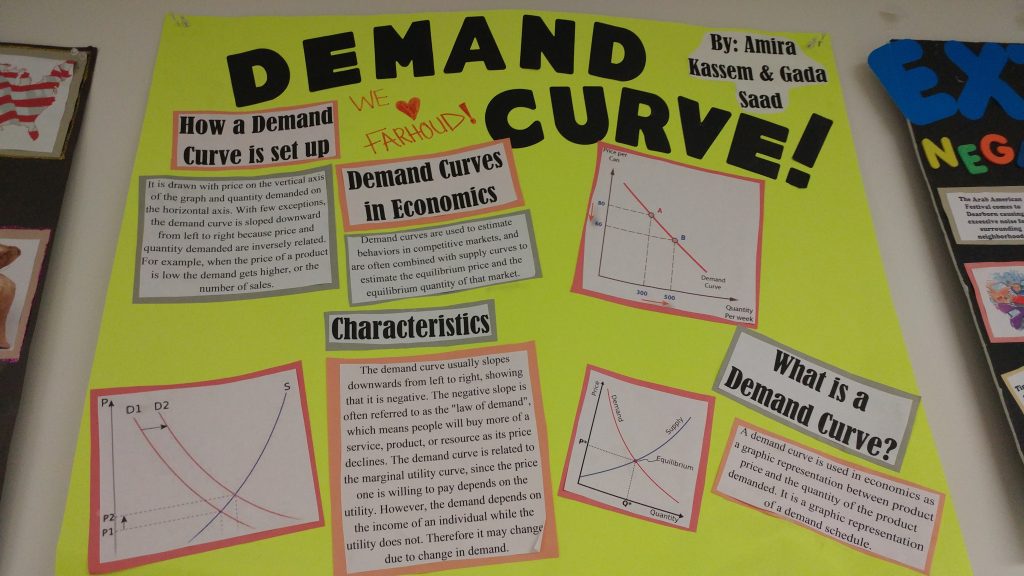 DEMAND
CURVE!
By: Amira
Kassem & Gada
Saad
WE ♥
FARHOUD!
How a Demand
Curve is set up
It is drawn with price on the vertical axis
of the graph and quantity demanded on
the horizontal axis. With few exceptions,
the demand curve is sloped downward
from left to right because price and
quantity demanded are inversely related.
For example, when the price of a product
is low the demand gets higher, or the
number of sales.
Demand Curves
in Economics
Demand curves are used to estimate
behaviors in competitive markets, and
are often combined with supply curves to
estimate the equilibrium price and the
equilibrium quantity of that market.
Price per
Can
80
60
A
B
Demand
Curve
300
500
Quantity
Per week
Characteristics
The demand curve usually slopes
downwards from left to right, showing
that it is negative. The negative slope is
often referred to as the "law of demand",
which means people will buy more of a
service, product, or resource as its price
declines. The demand curve is related to
the marginal utility curve, since the price
one is willing to pay depends on the
utility. However, the demand depends on
the income of an individual while the
utility does not. Therefore it may change
due to change in demand.
P
D1
D2
S
P2
P1
Price
Demand
Supply
P*
Equilibrium
Q*
Quantity
What is a
Demand Curve?
A demand curve is used in economics as
a graphic representation between product
price and the quantity of the product
demanded. It is a graphic representation
of a demand schedule.
EX
NEG
The Arab American
Festival comes to
Dearborn causing
excessive noise
surrounding
neighborhood